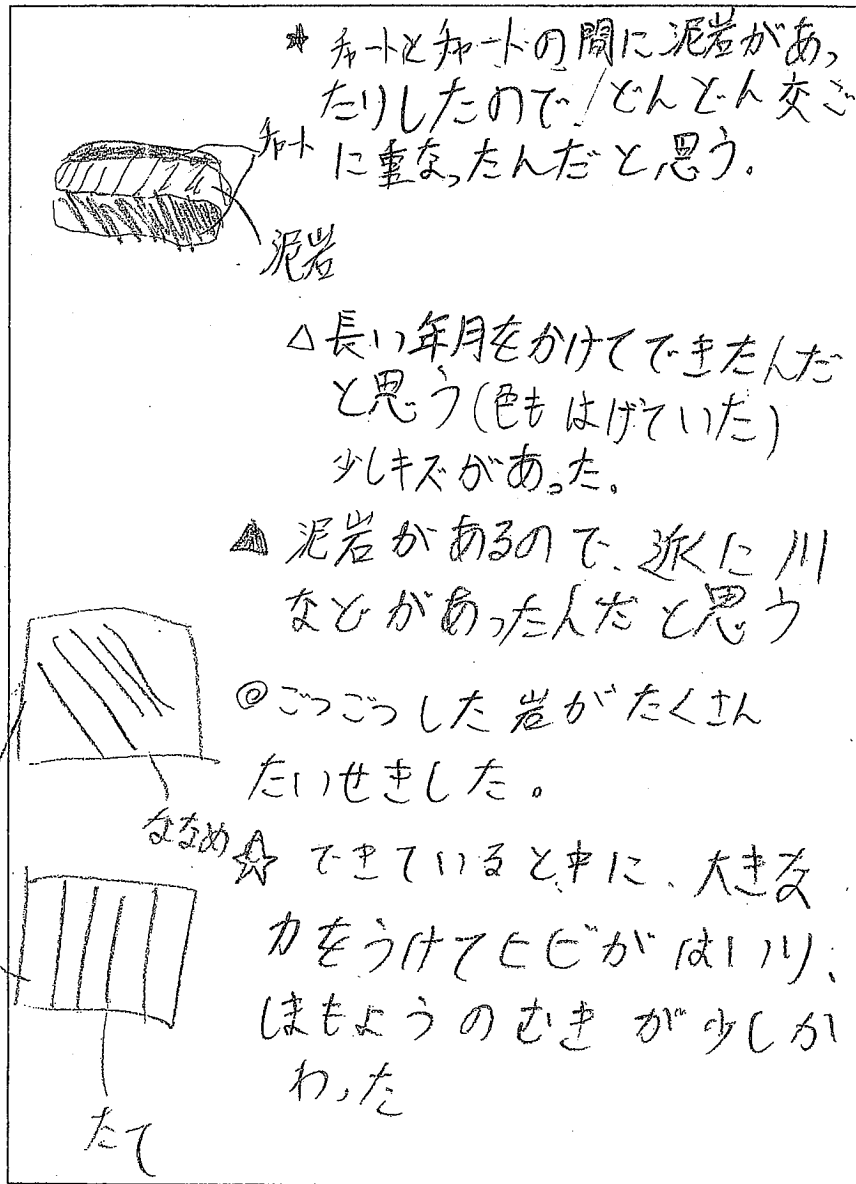 ★ チャートとチャートの間に泥岩があっ
たりしたので、どんどん交ご
に重なったんだと思う。
チャート
泥岩
△長い年月をかけてできたんだ
と思う(色もはげていた)
少しキズがあった。
▲ 泥岩があるので、近くに川
などがあったんだと思う
◎ごつごつした岩がたくさん
たいせきした。
ななめ
☆ できていると中に、大きな
力をうけてヒビがはいり、
しまもようのむきが少しか
わった
たて